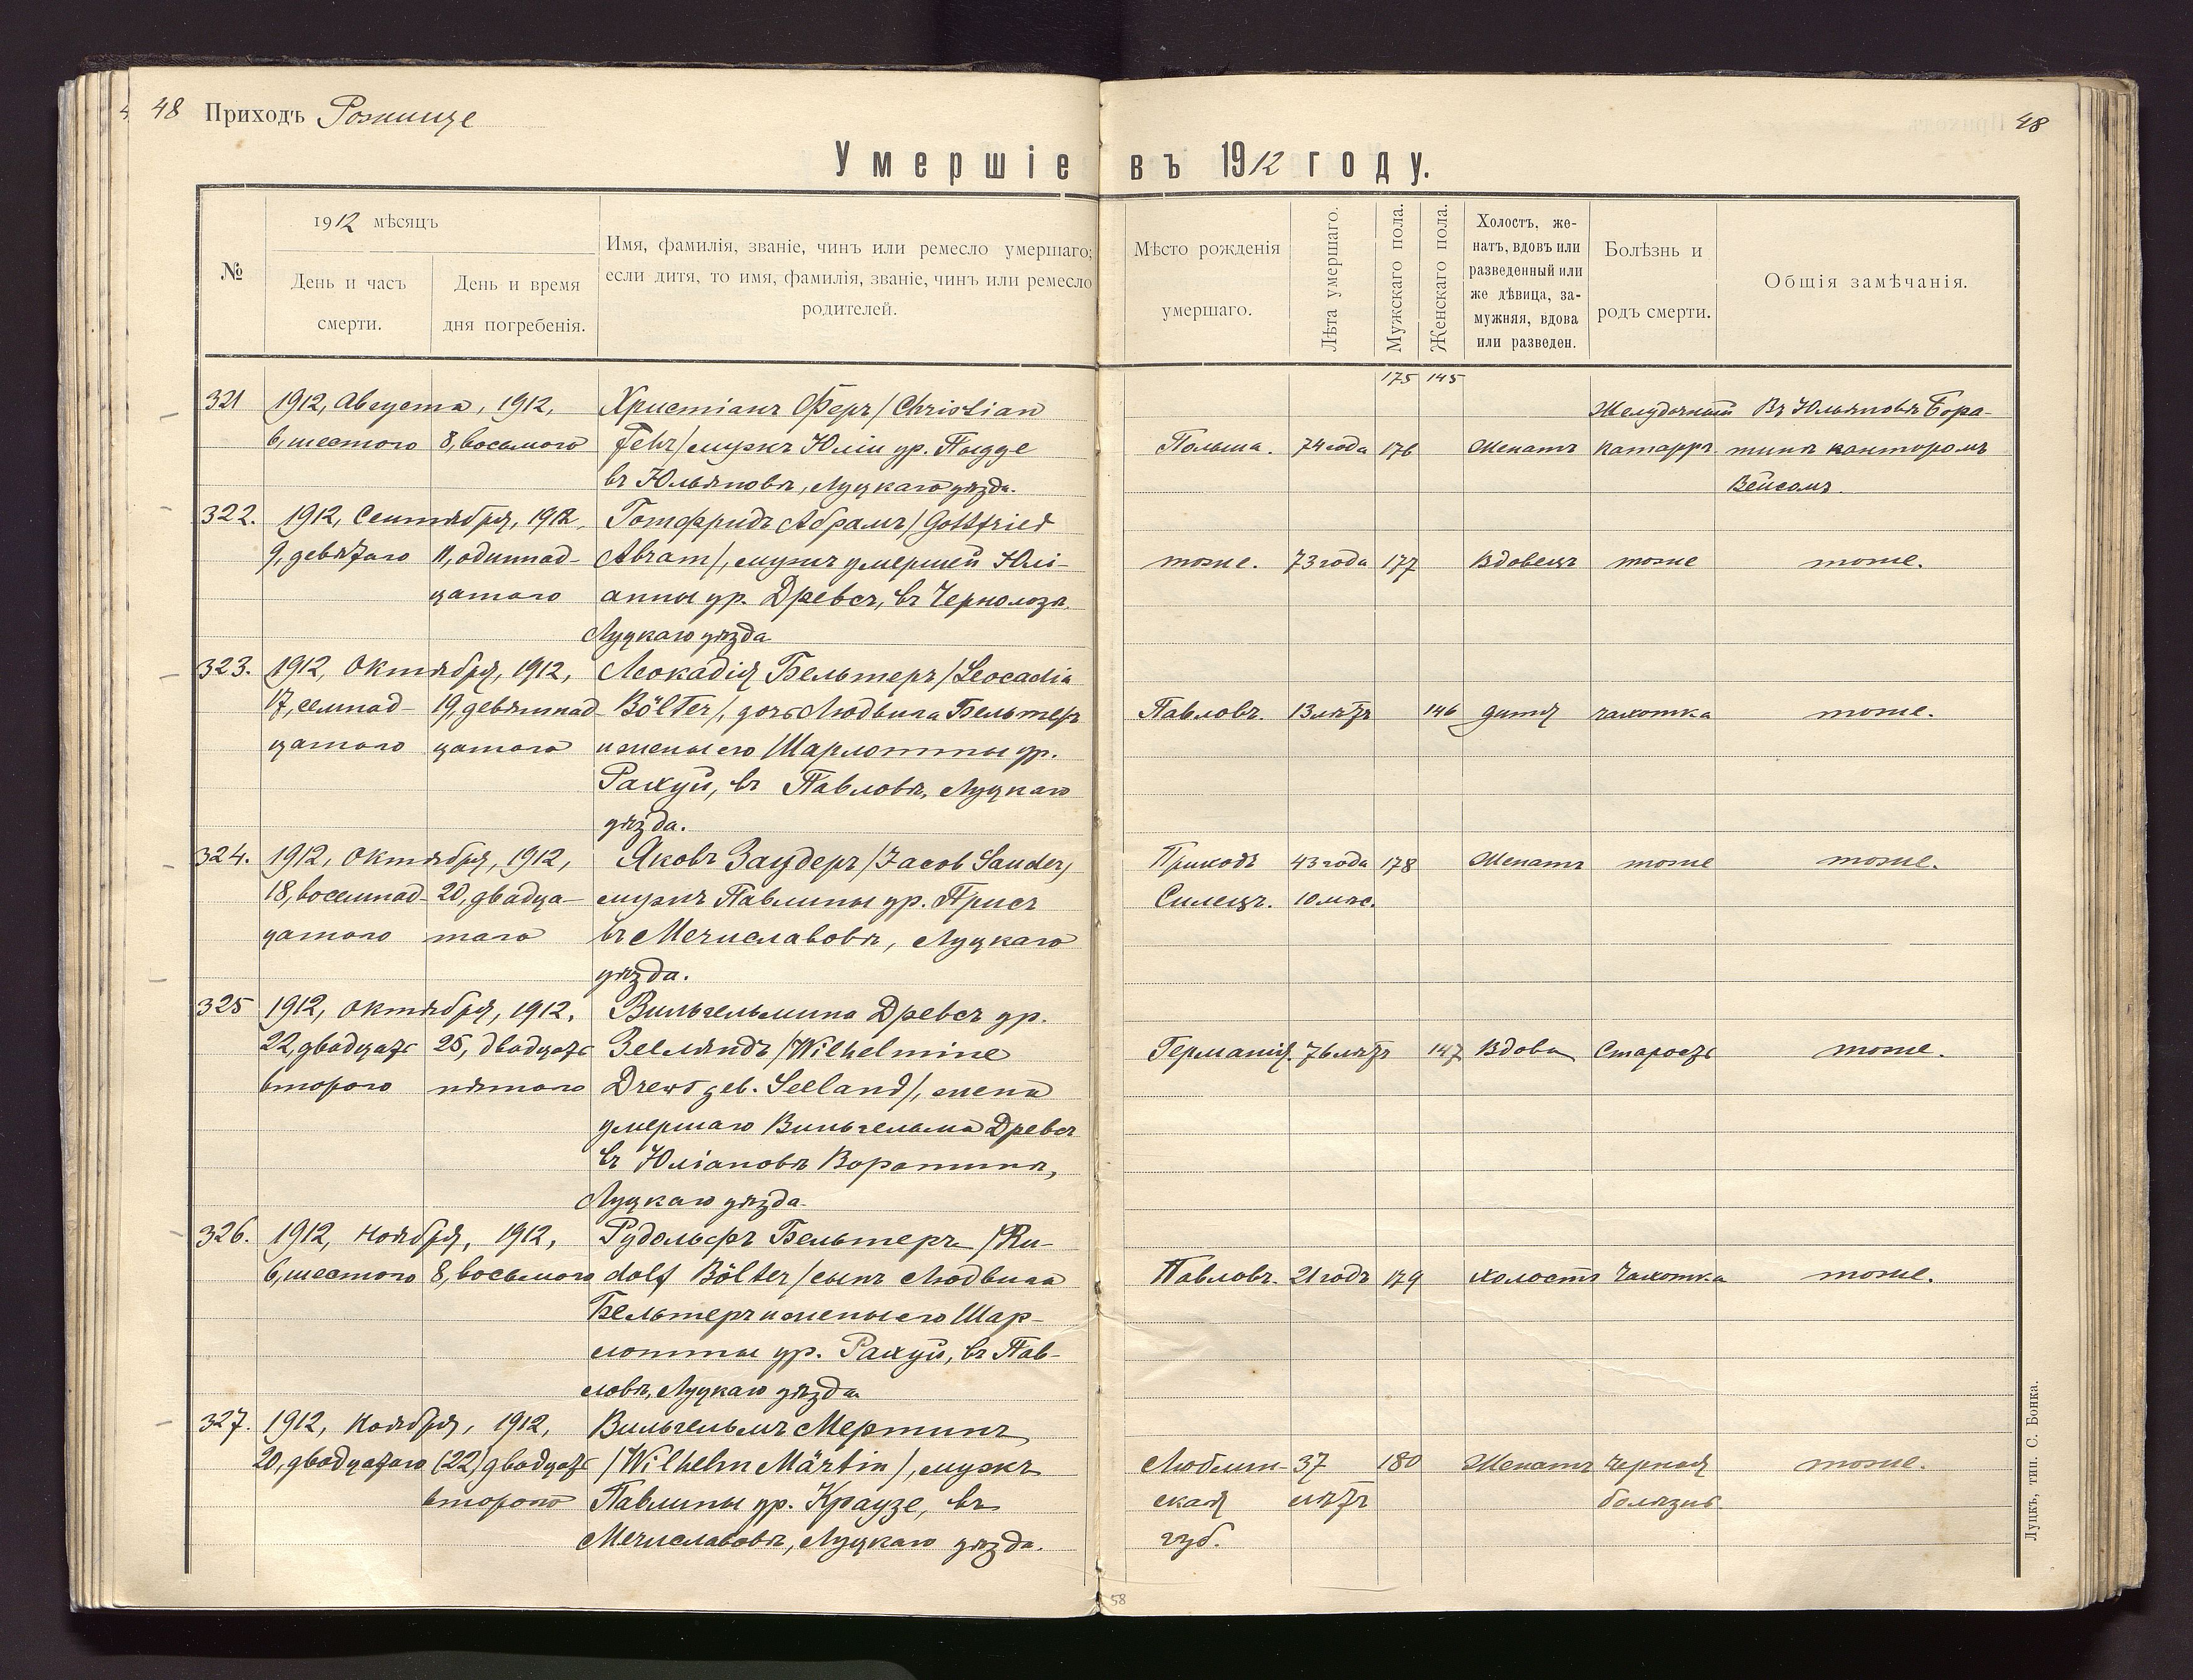 48 Приходъ Рожище
48
Умершіе въ 1912 году.
№
1912 мѣсяцъ
День и часъ
смерти.
День и время
дня погребенія.
Имя, фамилія, званіе, чинъ или ремесло умершаго;
если дитя, то имя, фамилія, званіе, чинъ или ремесло
родителей.
Мѣсто рожденія
умершаго.
Лѣта умершаго.
Мужскаго пола.
Женскаго пола.
Холостъ, же-
натъ, вдовъ или
разведенный или
же дѣвица, за-
мужняя, вдова
или разведен.
Болѣзнь и
родъ смерти.
Общія замѣчанія.
175 145
321 1912, Августа, 1912, Христіанъ Феръ /Christian Желудочный Въ Юльяновѣ Бора-
6, шестого 8, восьмого Fehr/ мужъ Юліи ур. Польша. 74 года 176 Женатъ катарръ. тинѣ канторомъ
въ Юльяновѣ, Луцкаго уѣзда. Вейсомъ.
322. 1912, Сентября, 1912, Готфридъ Абрамъ /Gottfried
9, девятаго 11, одиннад- Abram/, мужъ умершей Юлі- тоже. 73 года 177 Вдовецъ тоже тоже.
цатаго анны ур. Древсъ, въ Чернолозѣ
Луцкаго уѣзда
323. 1912, Октября, 1912, Леокадія Бельтеръ /Leocadia
17, семнад- 19, девятнад- Bölter/, дочь Людвига Бельтеръ Павловъ. 13 лѣтъ 146 дитя чахотка тоже.
цатаго цатаго и жены его Шарлотты ур.
Рахуй, въ Павловѣ, Луцкаго
уѣзда.
324. 1912, Октября, 1912, Яковъ Заудеръ /Jacob Sauder/ Приходъ 43 года 178 Женатъ тоже тоже.
18, восемнад- 20, двадца- мужъ Павлины ур. Присъ Силецъ. 10 мѣс.
цатаго таго въ Мечиславовѣ, Луцкаго
уѣзда.
325 1912, Октября, 1912, Вильгельмина Древсъ ур.
22, двадцать 25, двадцать Зеелендъ /Wilhelmine Германія. 76 лѣтъ 147 Вдова Старость тоже.
второго пятаго Drews geb. Seeland/, жена
умершаго Вильгельма Древсъ
въ Юліановѣ Воратинѣ,
Луцкаго уѣзда.
326. 1912, Ноября, 1912, Рудольфъ Бельтеръ /Ru-
6, шестого 8, восьмого dolf Bölter/ сынъ Людвига Павловъ. 21 годъ 179 холостъ Чахотка тоже.
Бельтеръ и жены его Шар-
лотты ур. Рахуй, въ Пав-
ловѣ, Луцкаго уѣзда
327. 1912, Ноября, 1912, Вильгельмъ Мертинъ
20, двадцатаго (22) двадцать /Wilhelm Märtin/, мужъ Люблин- 37 180 Женатъ Черная тоже.
второго Павлины ур. Краузе, въ ская лѣтъ болѣзнь.
Мечиславовѣ, Луцкаго уѣзда. губ.
Луцкъ, тип. С. Бонка.
58